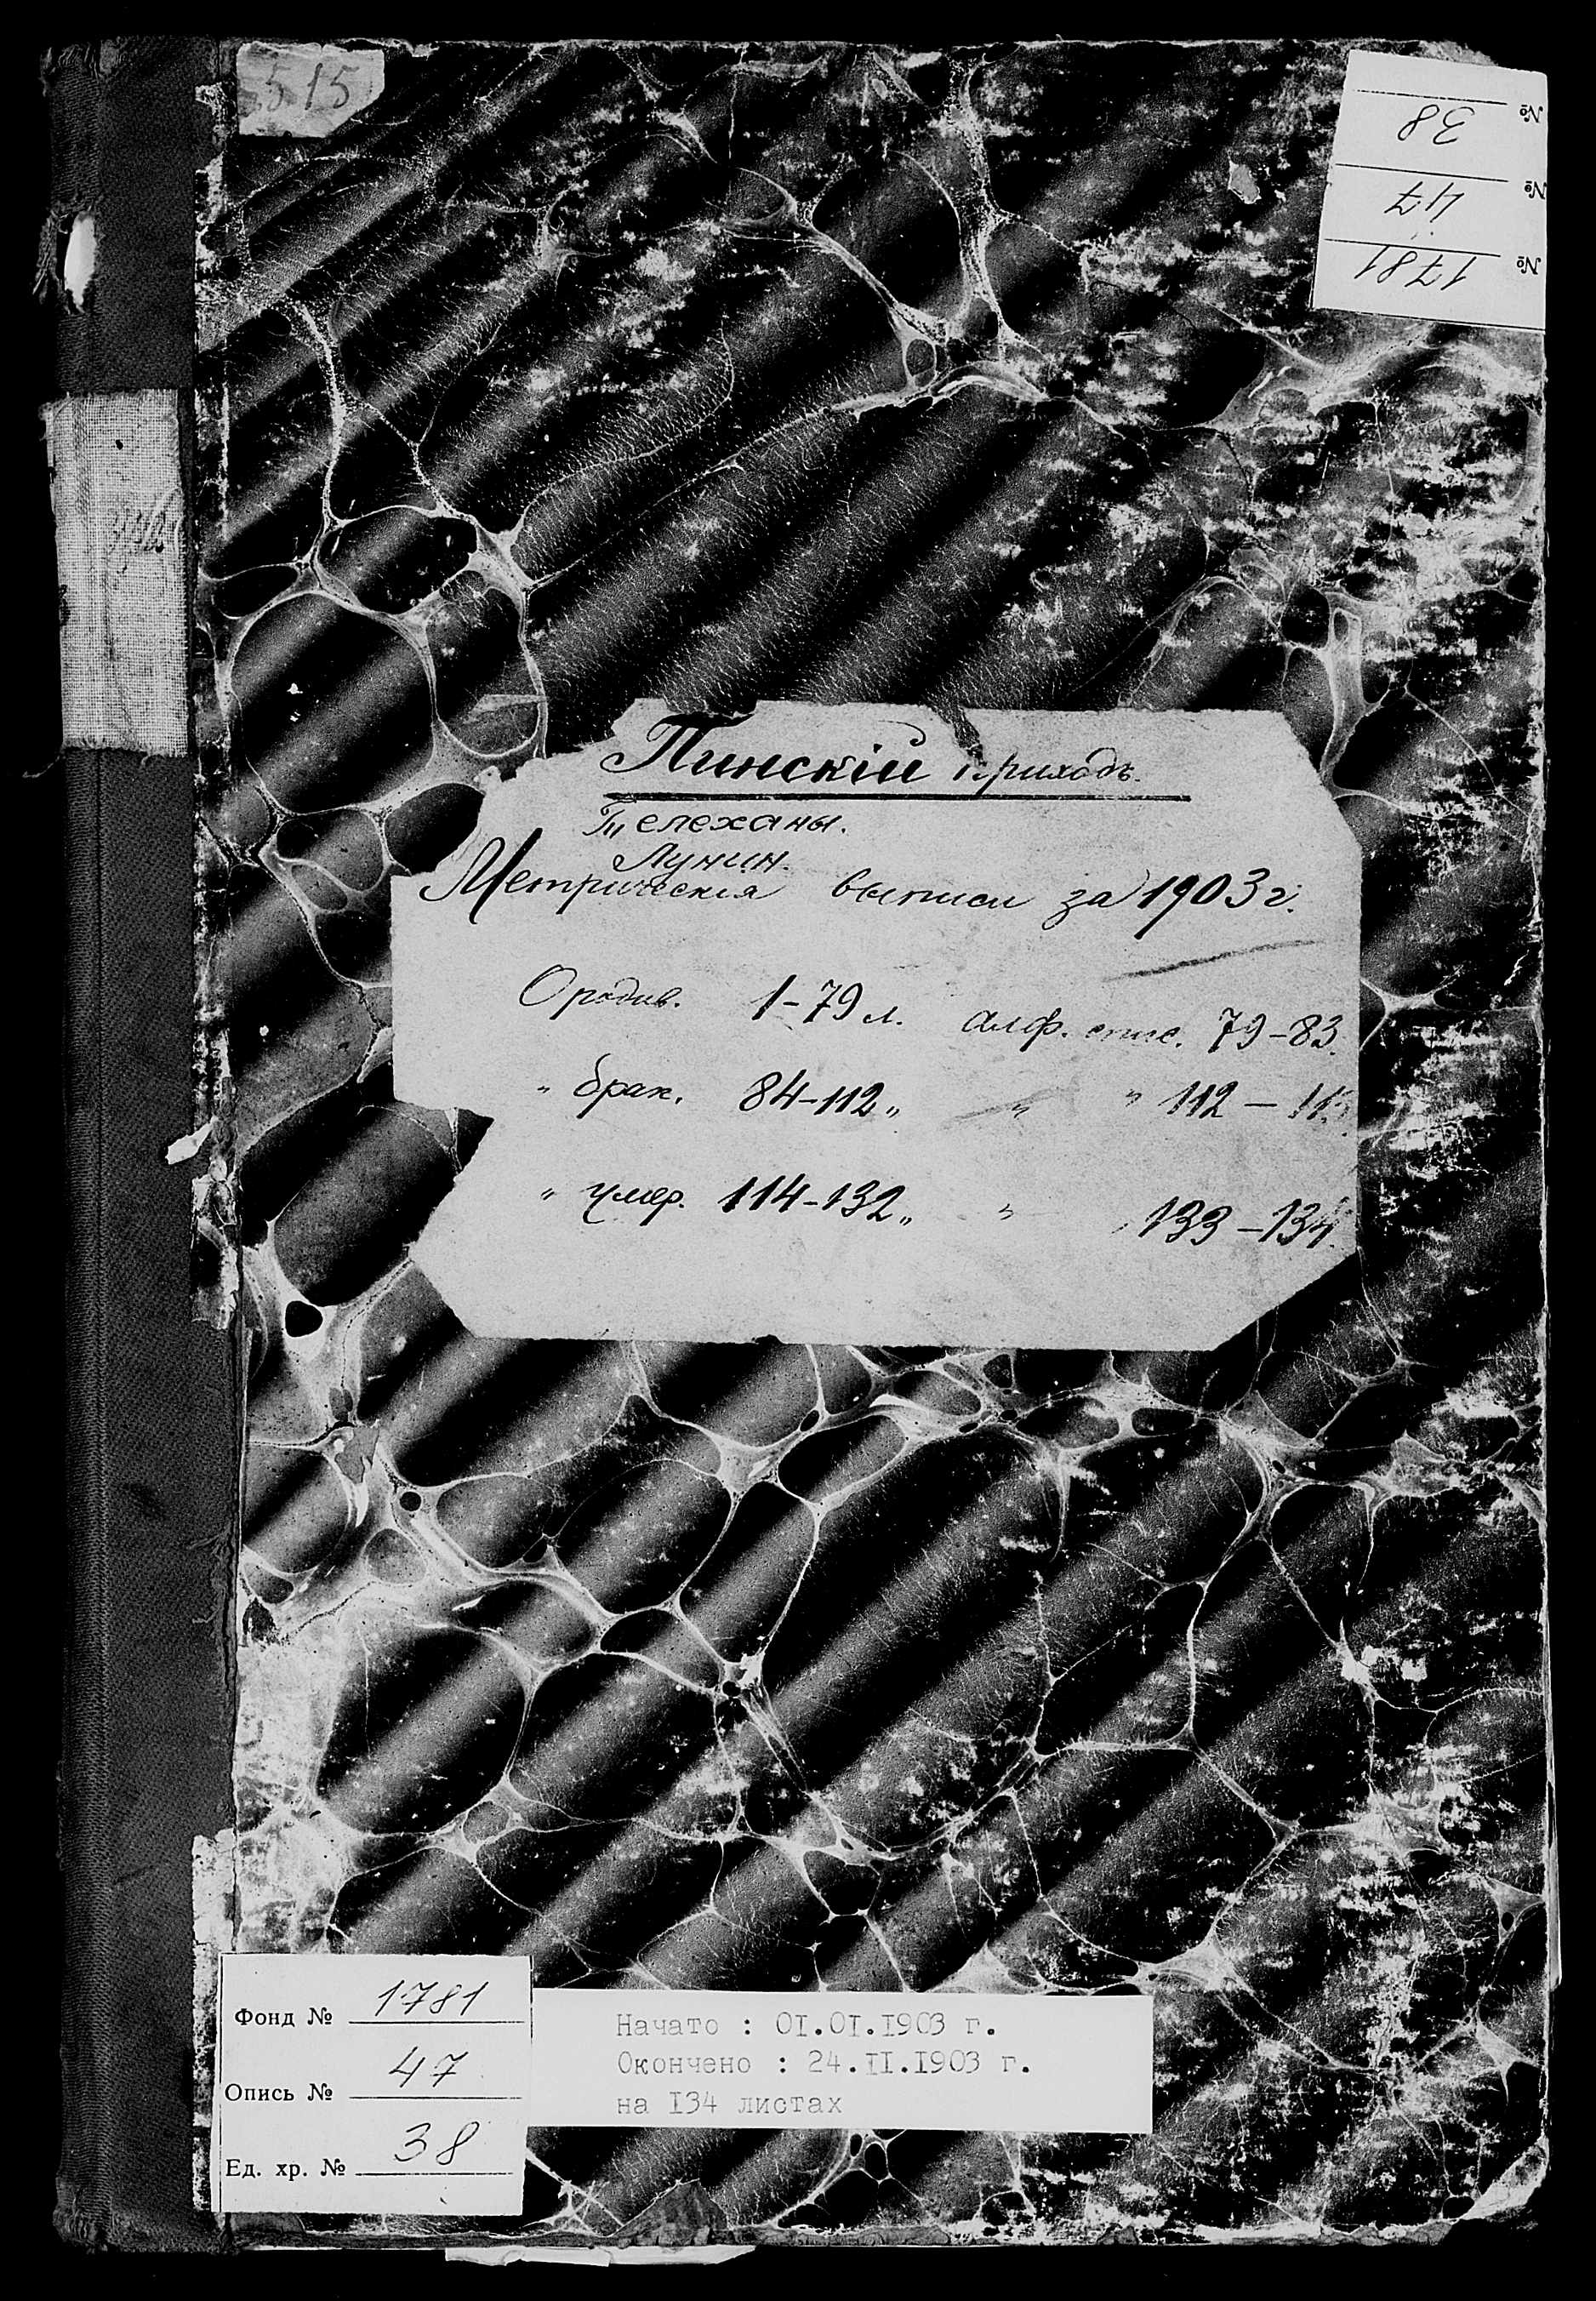 515
№ 38
№ 47
№ 1781
Пинскій приходъ.
Телеханы.
Лунин.
Метрическія выписи за 1903 г.
О родив. 1-79 л. алф. спис. 79-83.
" брак. 84-112 " " " 112 -
" умер. 114-132 " " 133-134
Фонд № 1781
Опись № 47
Ед. хр. № 38
Начато : 0I.0I.I903 г.
Окончено : 24.II.I903 г.
на I34 листах